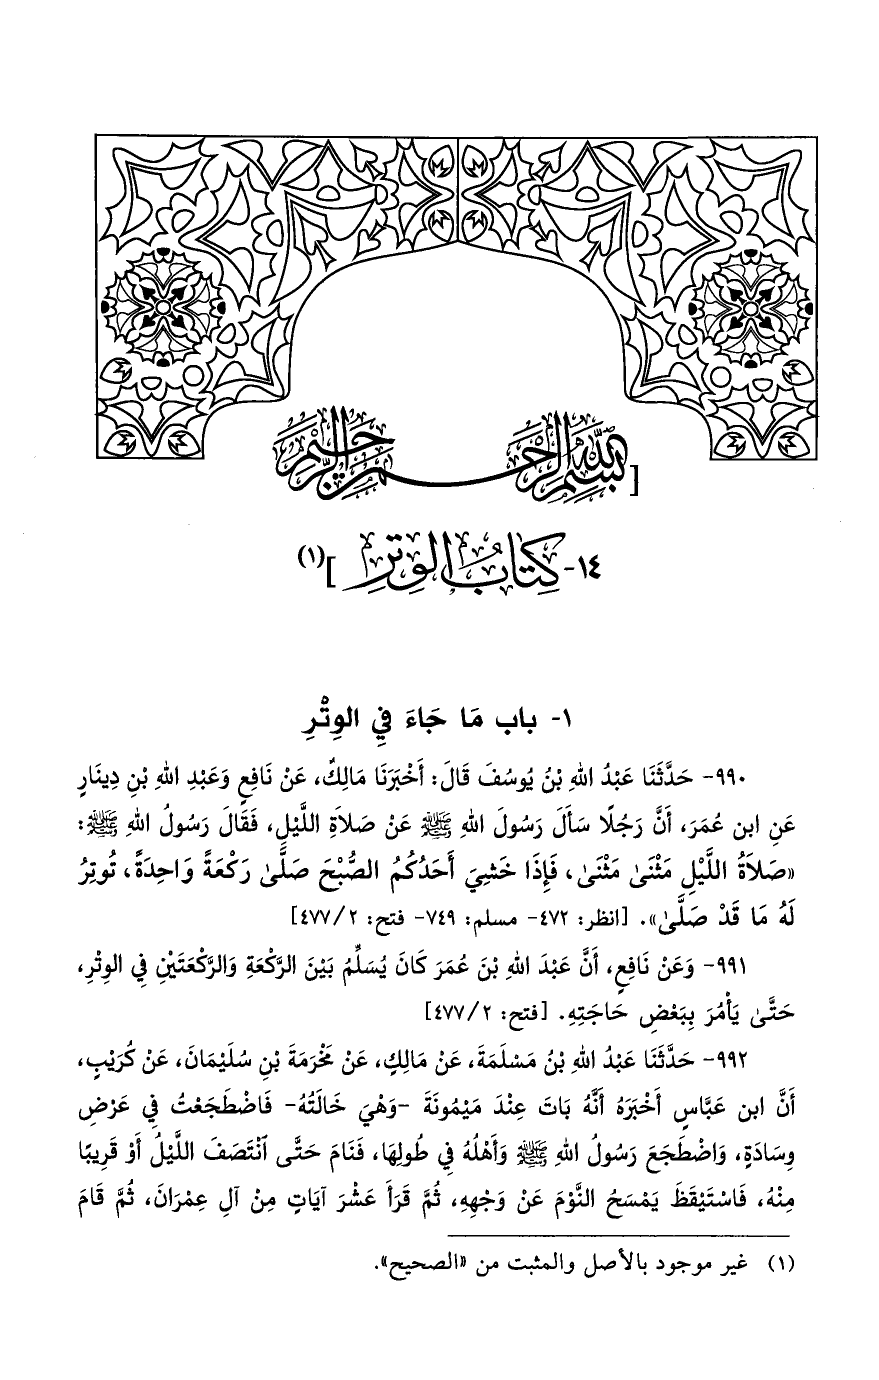 [بِسْمِ اللهِ الرَّحْمنِ الرَّحِيمِ
١٤- كِتَابُ الوِتْرِ ](١)
١- باب مَا جَاءَ فِي الوِتْرِ
٩٩٠- حَدَّثَنَا عَبْدُ اللهِ بْنُ يُوسُفَ قَالَ: أَخْبَرَنَا مَالِكٌ، عَنْ نَافِعٍ وَعَبْدِ اللهِ بْنِ دِينَارٍ
عَنِ ابن عُمَرَ، أَنَّ رَجُلًا سَأَلَ رَسُولَ اللهِ ﷺ عَنْ صَلاَةِ اللَّيْلِ، فَقَالَ رَسُولُ اللهِ ﷺ:
«صَلاَةُ اللَّيْلِ مَثْنَىٰ مَثْنَىٰ، فَإِذَا خَشِيَ أَحَدُكُمُ الصُّبْحَ صَلَّىٰ رَكْعَةً وَاحِدَةً، تُوتِرُ
لَهُ مَا قَدْ صَلَّىٰ». [انظر: ٤٧٢- مسلم: ٧٤٩- فتح: ٢/ ٤٧٧]
٩٩١- وَعَنْ نَافِعٍ، أَنَّ عَبْدَ اللهِ بْنَ عُمَرَ كَانَ يُسَلِّمُ بَيْنَ الرَّكْعَةِ وَالرَّكْعَتَيْنِ فِي الوِتْرِ،
حَتَّىٰ يَأْمُرَ بِبَعْضِ حَاجَتِهِ. [فتح: ٢/ ٤٧٧]
٩٩٢- حَدَّثَنَا عَبْدُ اللهِ بْنُ مَسْلَمَةَ، عَنْ مَالِكٍ، عَنْ مَخْرَمَةَ بْنِ سُلَيْمَانَ، عَنْ كُرَيْبٍ،
أَنَّ ابن عَبَّاسٍ أَخْبَرَهُ أَنَّهُ بَاتَ عِنْدَ مَيْمُونَةَ -وَهْيَ خَالَتُهُ- فَاضْطَجَعْتُ فِي عَرْضِ
وِسَادَةٍ، وَاضْطَجَعَ رَسُولُ اللهِ ﷺ وَأَهْلُهُ فِي طُولِهَا، فَنَامَ حَتَّى ٱنْتَصَفَ اللَّيْلُ أَوْ قَرِيبًا
مِنْهُ، فَاسْتَيْقَظَ يَمْسَحُ النَّوْمَ عَنْ وَجْهِهِ، ثُمَّ قَرَأَ عَشْرَ آيَاتٍ مِنْ آلِ عِمْرَانَ، ثُمَّ قَامَ
(١) غير موجود بالأصل والمثبت من «الصحيح».